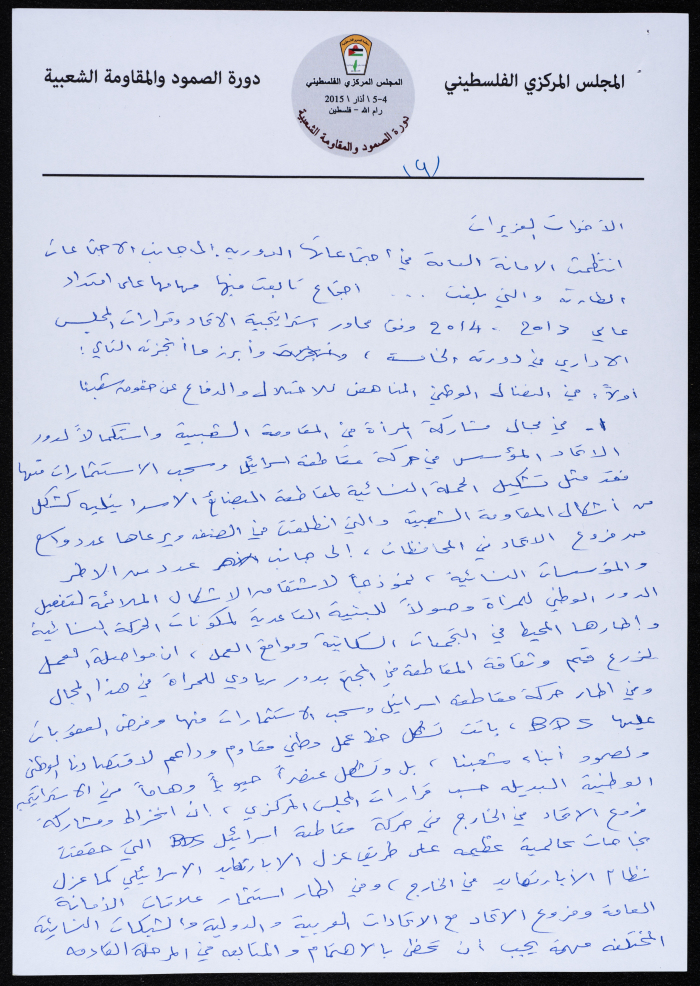 المجلس المركزي الفلسطيني
دورة الصمود والمقاومة الشعبية
المجلس المركزي الفلسطيني
4-5 \ آذار \ 2015
رام الله - فلسطين
دورة الصمود والمقاومة الشعبية
الأخوات العزيزات
انتظمت الامانة العامة في اجتماعاتها الدورية إلى جانب الاجتماعات
الطارئة والتي بلغت ... اجتماع تابعت فيها مهامها على امتداد
عامي 2013 - 2014 وفق محاور استراتيجية الاتحاد وقرارات المجلس
الاداري في دورته الخامسة ، وأبرز ما أنجزته التالي :
أولاً : في النضال الوطني المناهض للاحتلال والدفاع عن حقوق شعبنا
1- في مجال مشاركة المرأة في المقاومة الشعبية واستكمالاً لدور
الاتحاد المؤسس في حركة مقاطعة اسرائيل وسحب الاستثمارات منها
فقد مثل تشكيل الحملة النسائية لمقاطعة البضائع الاسرائيلية كشكل
من أشكال المقاومة الشعبية والتي انطلقت في الضفة ويرعاها عدد واسع
من فروع الاتحاد في المحافظات ، إلى جانب عدد من الاطر
والمؤسسات النسائية ، نموذجاً لاشتقاق الاشكال الملائمة لتفعيل
الدور الوطني للمرأة وصولاً للبنية القاعدية لمكونات الحركة النسائية
وإطارها المحيط في التجمعات السكانية ومواقع العمل ، ان مواصلة العمل
لزرع قيم وثقافة المقاطعة في المجتمع بدور ريادي للمرأة في هذا المجال
وفي اطار حركة مقاطعة اسرائيل وسحب الاستثمارات منها وفرض العقوبات
عليها BDS ، باتت تشكل خط عمل وطني مقاوم وداعم لاقتصادنا الوطني
ولصمود أبناء شعبنا ، بل وتشكل عنصراً حيوياً وهاماً من الاستراتيجية
الوطنية البديله حسب قرارات المجلس المركزي ، ان انخراط ومشاركة
فروع الاتحاد في الخارج في حركة مقاطعة اسرائيل BDS التي حققت
نجاحات عالمية عظيمه على طريق عزل الابارتهايد الاسرائيلي كما عزل
نظام الأبارتهايد في الخارج ، وفي اطار استثمار علاقات الأمانة
العامة وفروع الاتحاد مع الاتحادات العربية والدولية والشبكات النسائية
المختلفه مهمة يجب أن تحظى بالاهتمام والمتابعه في المرحلة القادمه